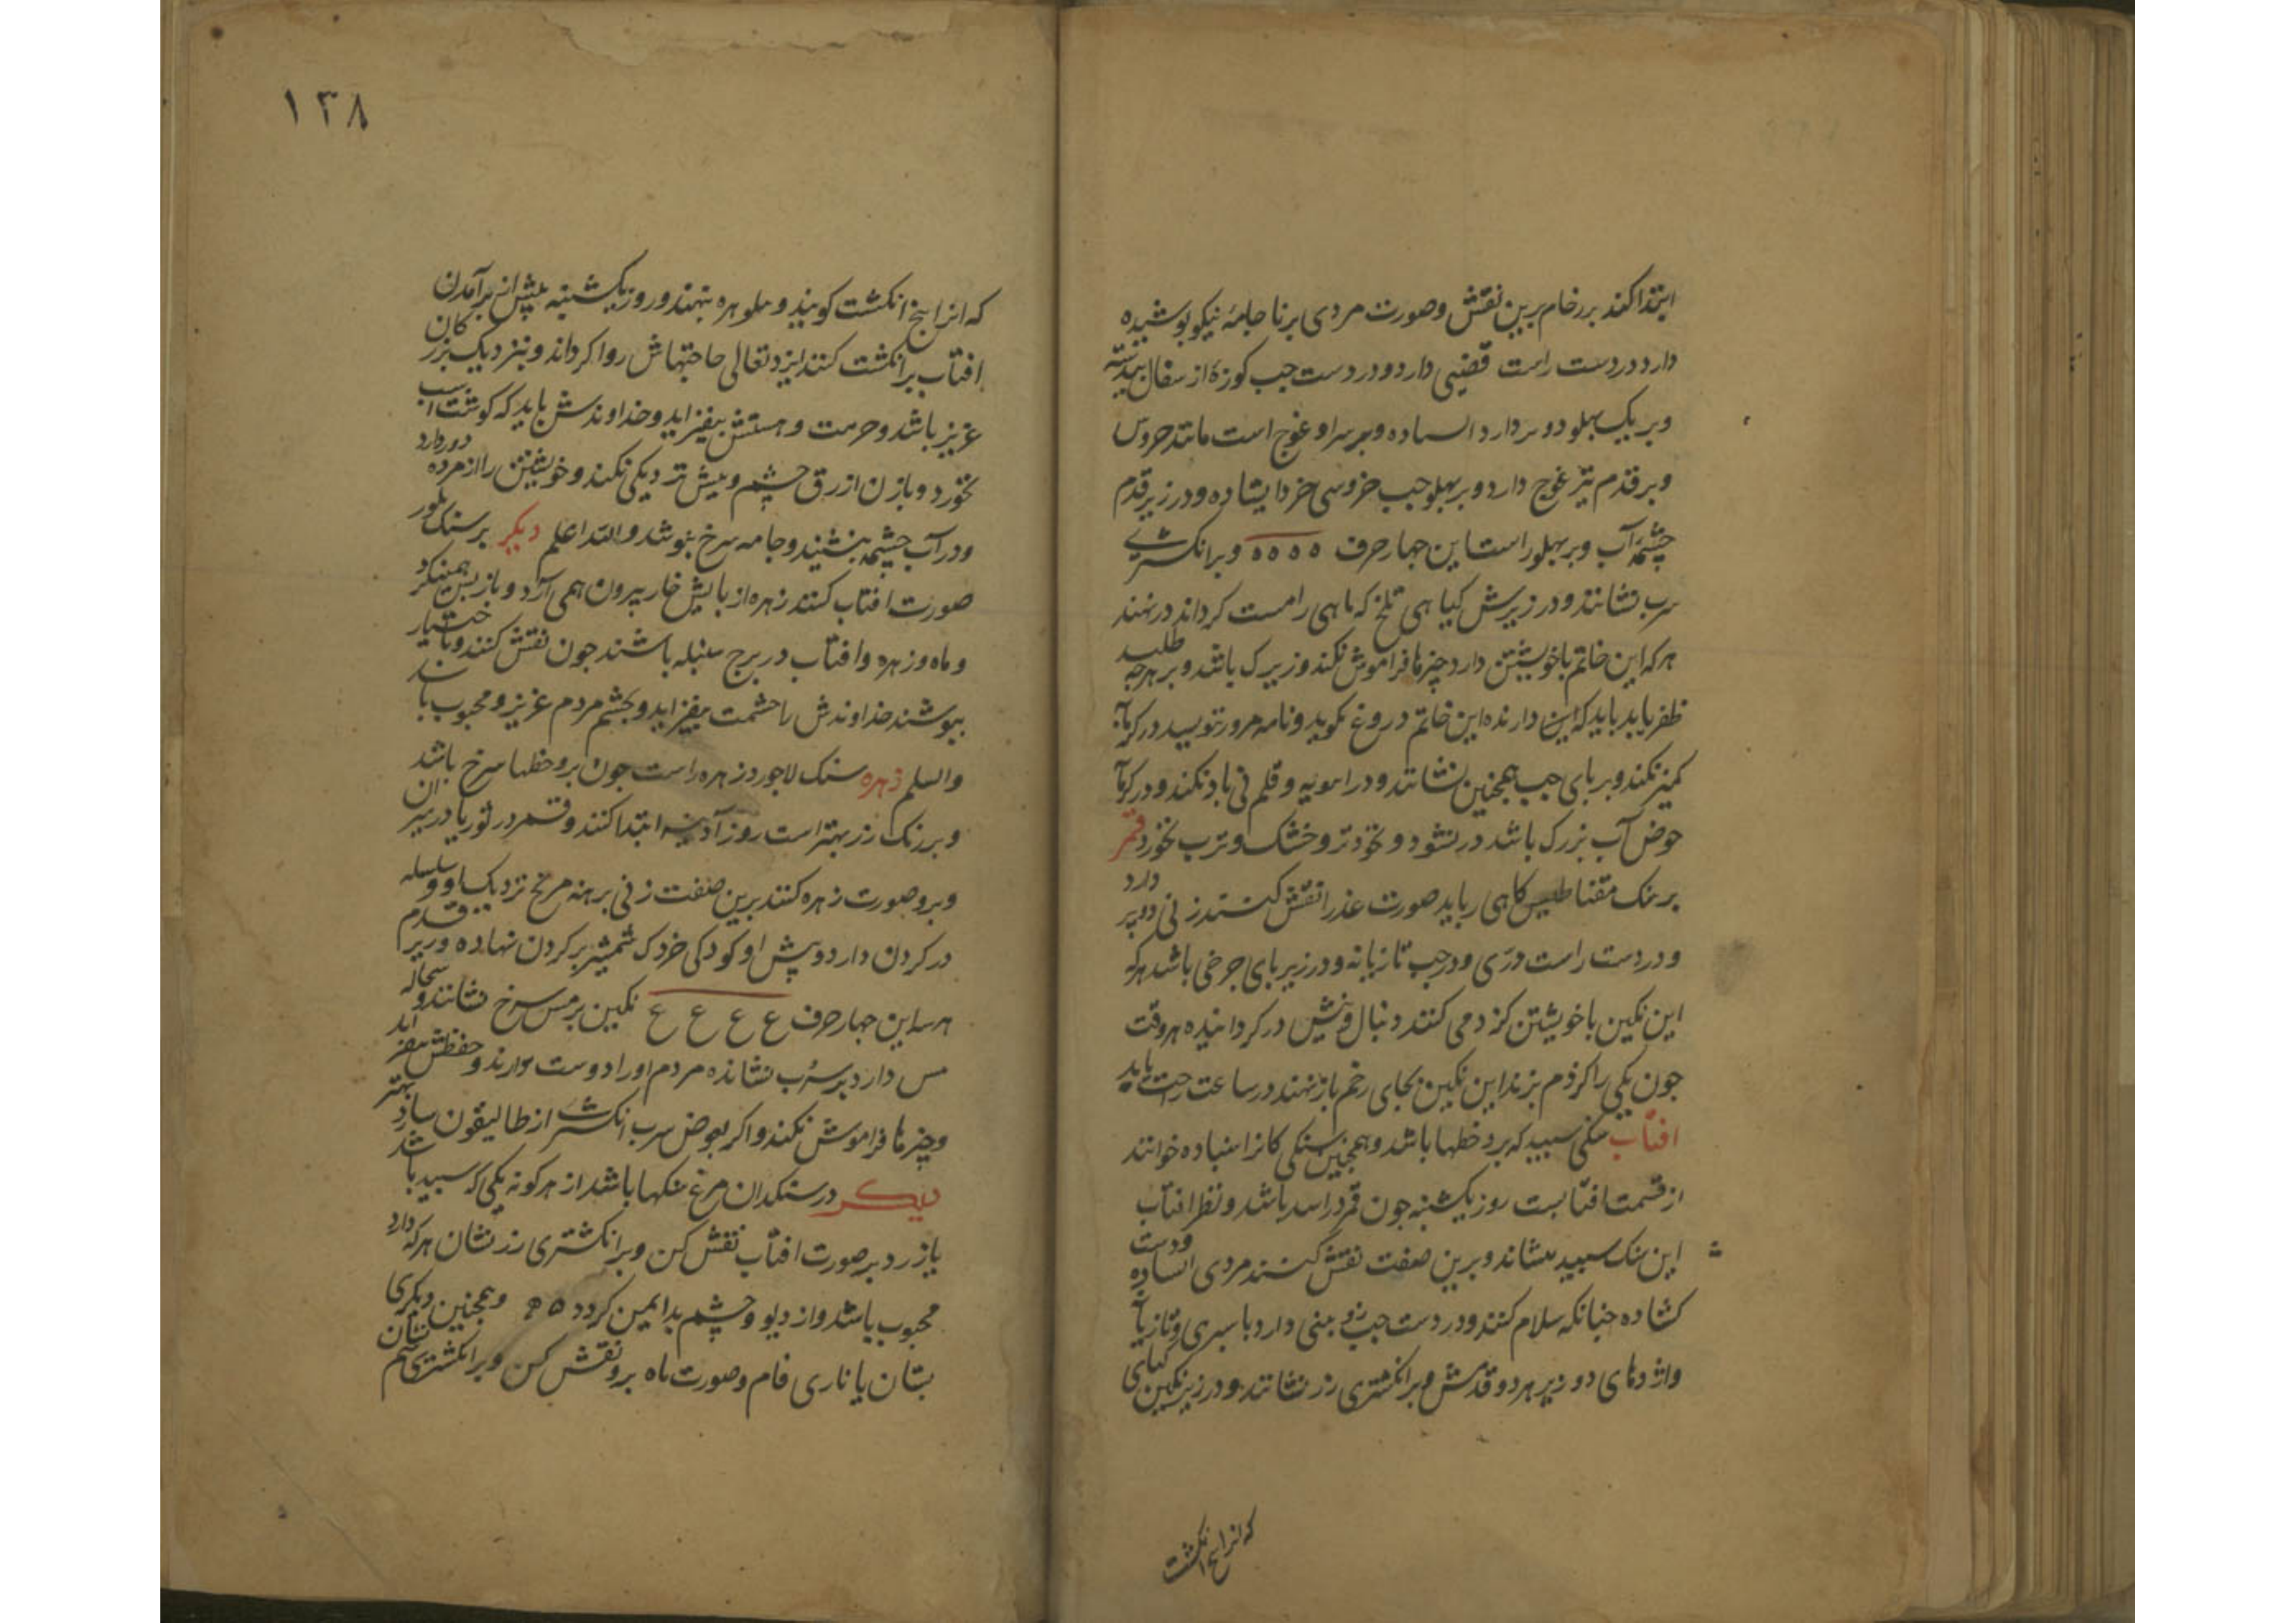 ابتدا کند بر رخام برین نقش و صورت مردی برنا جامهٔ نیکو پوشیده
دارد در دست راست قضیبی دارد و در دست چپ کوزهٔ از سفال
و بر یک پهلو دو سر دارد و بر سر او غوج است مانند خروس
و بر قدم نیز غوج دارد و بر پهلو چپ خروسی خرد ایستاده و در زیر قدم
چشمهٔ آب و بر پهلو راست این چهار حرف ه ه ه ه و بر انکشتری
سرب نشانند و در زیرش کیاهی تلخ که ماهی را مست کرداند در نهند
هر که این خاتم با خویشتن دارد چیزها فراموش نکند و زیرک باشد و بر هرچه طلبد
ظفر یابد باید که این دارنده این خاتم دروغ نکوید و نامه مزور ننویسد در کرمابه
کمیز نکند و بر پای چپ همچنین نشانند و در و قلم نی باد نکند و در کرمابه
حوض آب بزرک باشد در نشود و نخورد تر و خشک و ترب نخورد قمر
بر سنک مقناطیس کاهی رباید صورت عذرا نقش کنند زنی دو پر دارد
و در دست راست درّی و در چپ تازیانه و در زیر پای چرخی باشد هر که
این نکین با خویشتن کزدمی کنند دنبال و نیش در کردانیده هر وقت
چون یکی را کزدم بزند این نکین بجای زخم باز نهند در ساعت راحت یابد
افتاب سنکی سپید که برو خطها باشد و همچنین سنکی کانرا سنباده خوانند
از قسمت افتابست روز یکشنبه چون قمر در اسد باشد و نظر افتاب
این سنک سپید بنشاند و برین صفت نقش کنند مردی ایستاده و دست
کشاده چنانکه سلام کنند و در دست چپ دارد با سپری و تازیانه
واژدهای دو زیر هر دو قدمش و بر انکشتری زر نشانند و در زیر نکین کیای
که انرا بنج انکشت
١٣٨
که انرا بنج انکشت کویند و هلوهره بنهند و روز یکشنبه پیش از برآمدن
افتاب بر انکشت کنند ایزد تعالی حاجتهاش روا کرداند و بنزدیک بزرکان
عزیز باشد و حرمت و هستش بیفزاید و خداوندش باید که کوشت اسب
نخورد و با زن ازرق چشم و میش نزدیکی نکند و خویشتن را از مرده دور دارد
و در آب چشمه بنشیند و جامه سرخ بپوشد و الله اعلم دیکر بر سنک بلور
صورت افتاب کنند زهره از بالیش خار بیرون همی آرد و باز پس همینکرد
و ماه و زهره و افتاب در برج سنبله باشند چون نقش کنند و باختیار
بپوشند خداوندش را حشمت بیفزاید و بچشم مردم عزیز و محبوب باشد
والسلم زهره سنک لاجورد زهره راست چون برو خطها سرخ باشد
و برنک زر بهتر است روز آدینه ابتدا کنند و قمر در ثور یا در میزان
و برو صورت زهره کنند برین صفت زنی برهنه مریخ نزدیک او و سلسله
در کردن دارد و پیش او کودکی خردک شمشیر بر کردن نهاده و زیر قدم
هر سه این چهار حرف ع ع ع ع نکین بر مس سرخ نشانند و سحاله
مس دارد بر سرب نشانده مردم او را دوست دارند و حفظش بیفزاید
و چیزها فراموش نکند و اکر بعوض سرب انکشتر از طالیقون سازد بهتر باشد
دیکر در سنکدان مرغ سنکها باشد از هر کونه یکی که سپید باشد
یا زرد بر صورت افتاب نقش کن و بر انکشتری زر نشان هر که دارد
محبوب باشد و از دیو و چشم بد ایمن کردد و همچنین دیکری
بستان یا ناری فام و صورت ماه برو نقش کن و بر انکشتری سیم نشان